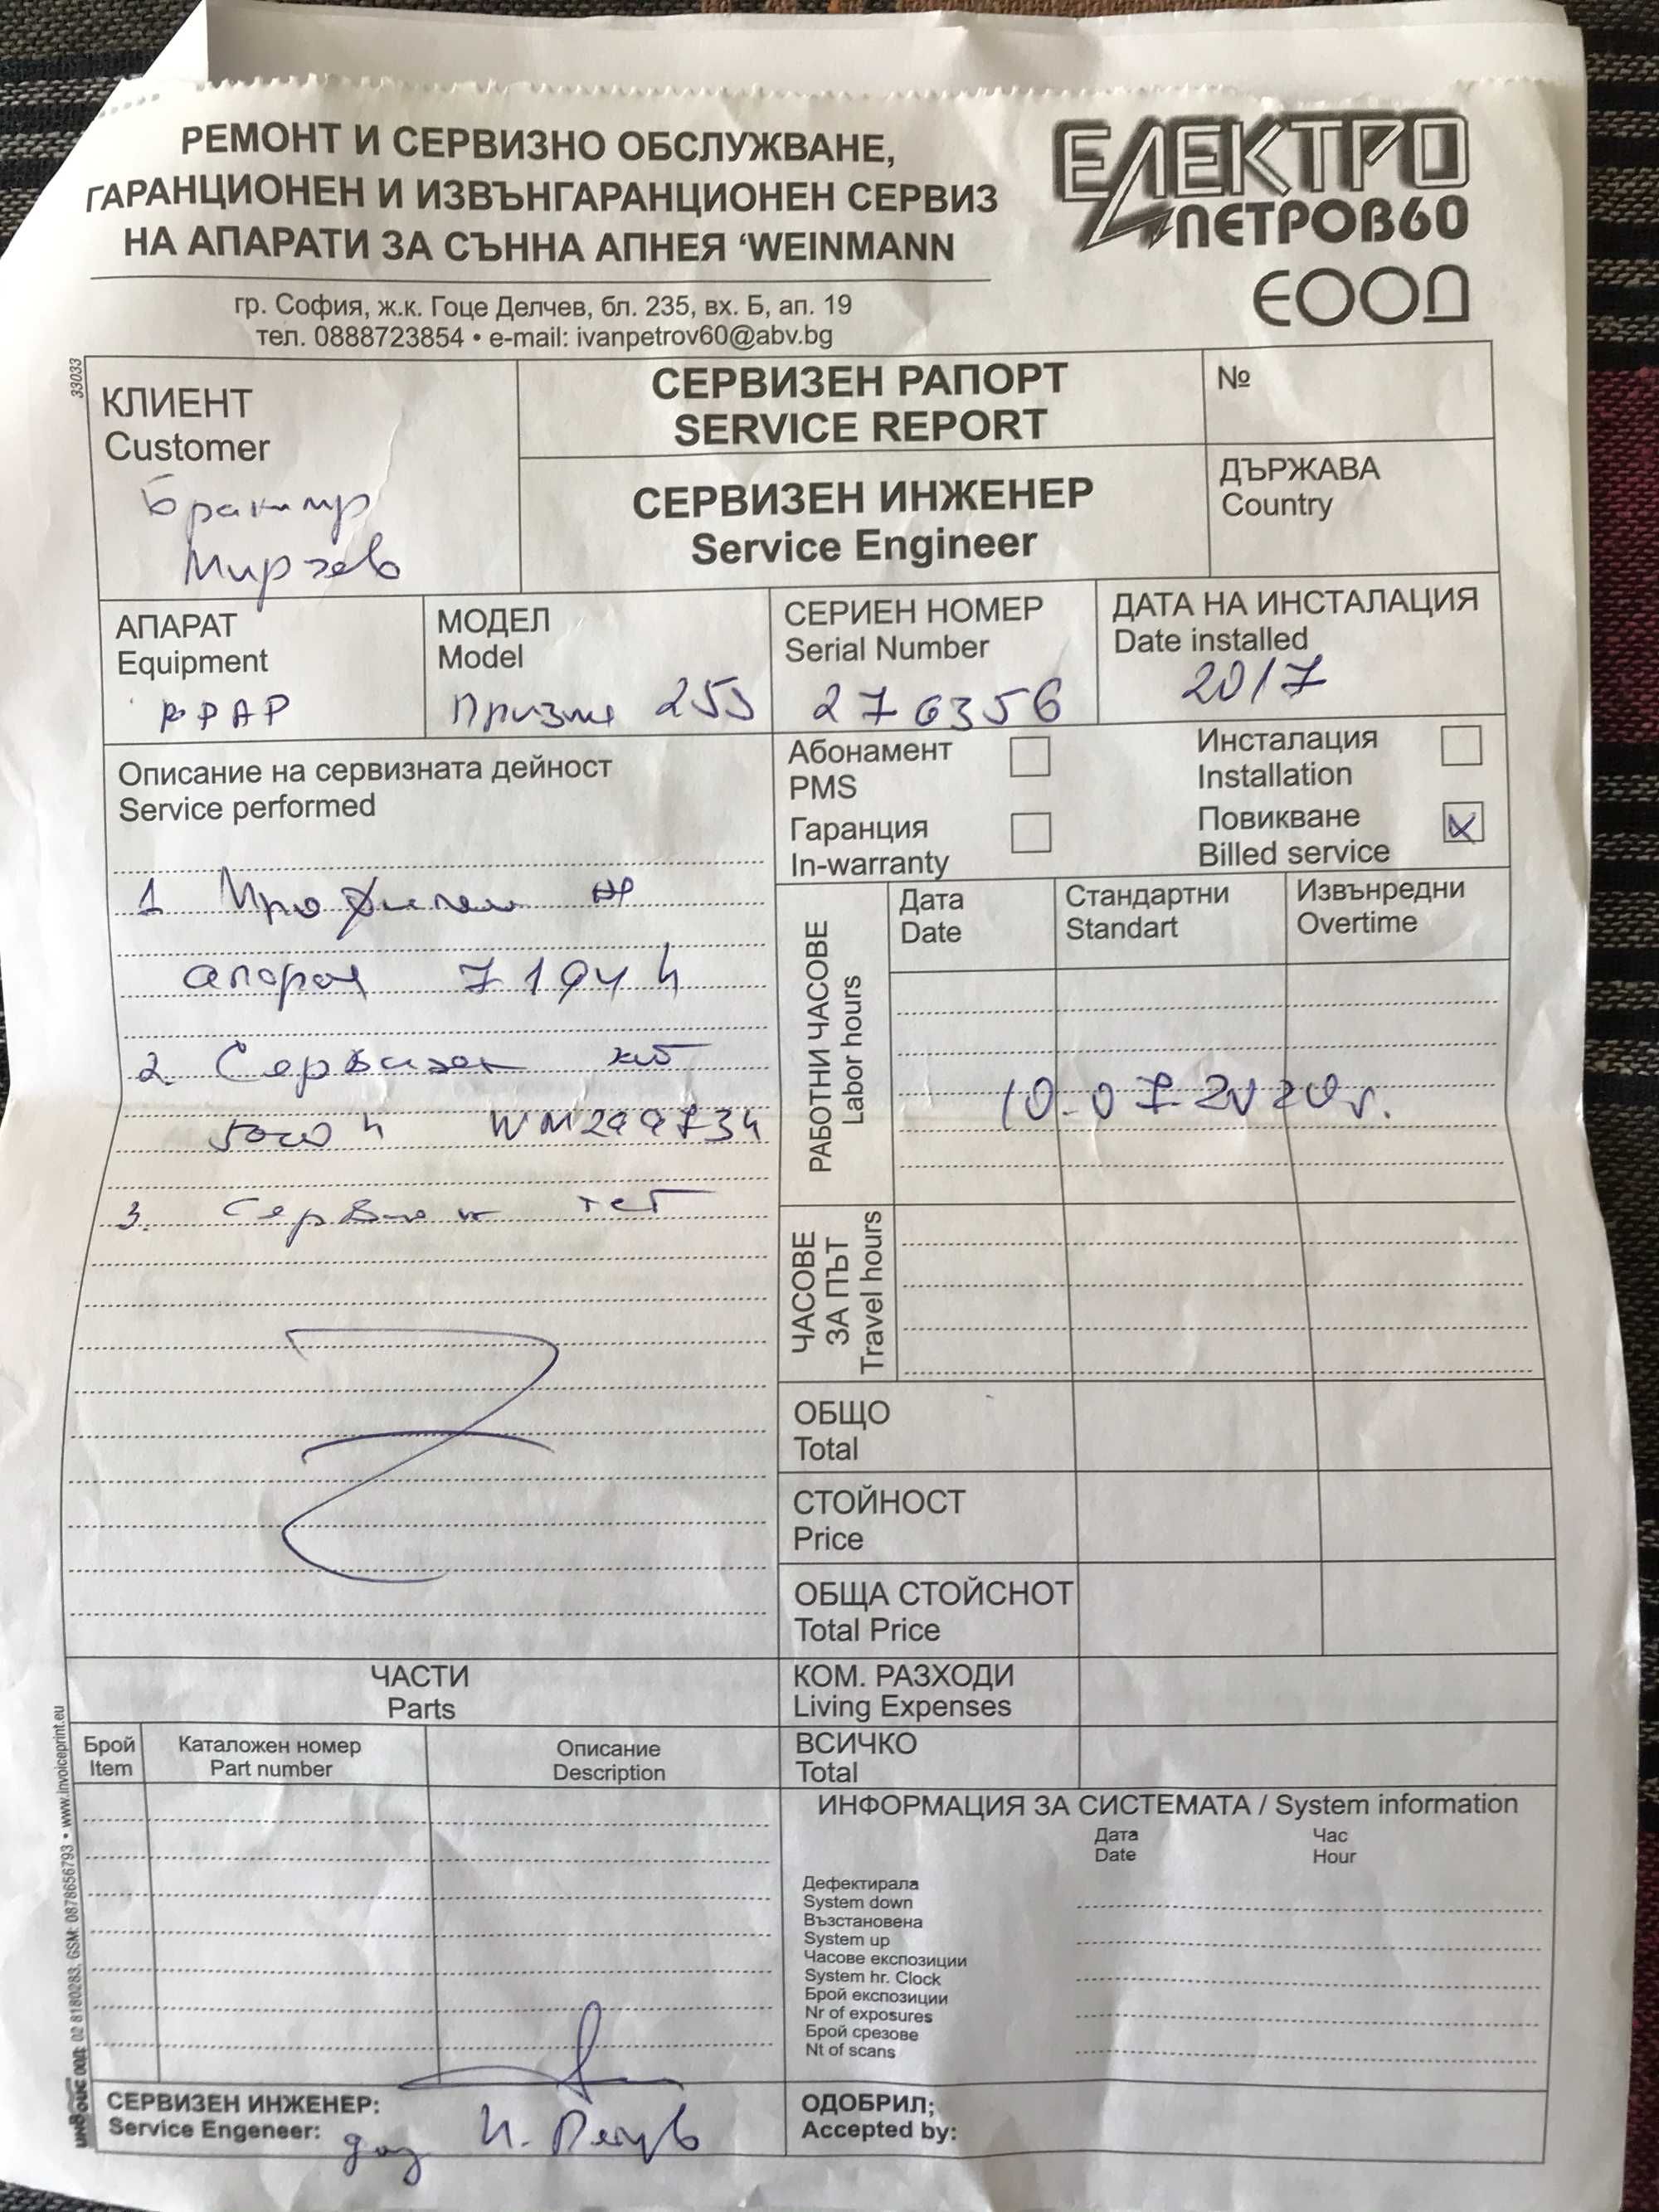 РЕМОНТ И СЕРВИЗНО ОБСЛУЖВАНЕ,
ГАРАНЦИОНЕН И ИЗВЪНГАРАНЦИОНЕН СЕРВИЗ
НА АПАРАТИ ЗА СЪННА АПНЕЯ ‘WEINMANN
ЕЛЕКТРО
ПЕТРОВ60
ЕООД
гр. София, ж.к. Гоце Делчев, бл. 235, вх. Б, ап. 19
тел. 0888723854 • e-mail: ivanpetrov60@abv.bg
33033
КЛИЕНТ
Customer
Мирчев
СЕРВИЗЕН РАПОРТ
SERVICE REPORT
№
СЕРВИЗЕН ИНЖЕНЕР
Service Engineer
ДЪРЖАВА
Country
АПАРАТ
Equipment
МОДЕЛ
Model
Призма
СЕРИЕН НОМЕР
Serial Number
276356
ДАТА НА ИНСТАЛАЦИЯ
Date installed
2017
Описание на сервизната дейност
Service performed
1
апарат 7194 h
2. Сервизен
3. Сервизен тест
Абонамент
PMS
Инсталация
Installation
Гаранция
In-warranty
Повикване
Billed service
РАБОТНИ ЧАСОВЕ
Labor hours
Дата
Date
Стандартни
Standart
Извънредни
Overtime
10.07.2020г.
ЧАСОВЕ
ЗА ПЪТ
Travel hours
ОБЩО
Total
СТОЙНОСТ
Price
ОБЩА СТОЙСНОТ
Total Price
КОМ. РАЗХОДИ
Living Expenses
ВСИЧКО
Total
ЧАСТИ
Parts
Брой
Item
Каталожен номер
Part number
Описание
Description
ИНФОРМАЦИЯ ЗА СИСТЕМАТА / System information
Дата
Date
Час
Hour
Дефектирала
System down
Възстановена
System up
Часове експозиции
System hr. Clock
Брой експозиции
Nr of exposures
Брой срезове
Nt of scans
СЕРВИЗЕН ИНЖЕНЕР:
Service Engeneer:
И. Петров
ОДОБРИЛ;
Accepted by:
ООД: 02 8180283, GSM: 0878656793 • www.invoiceprint.eu